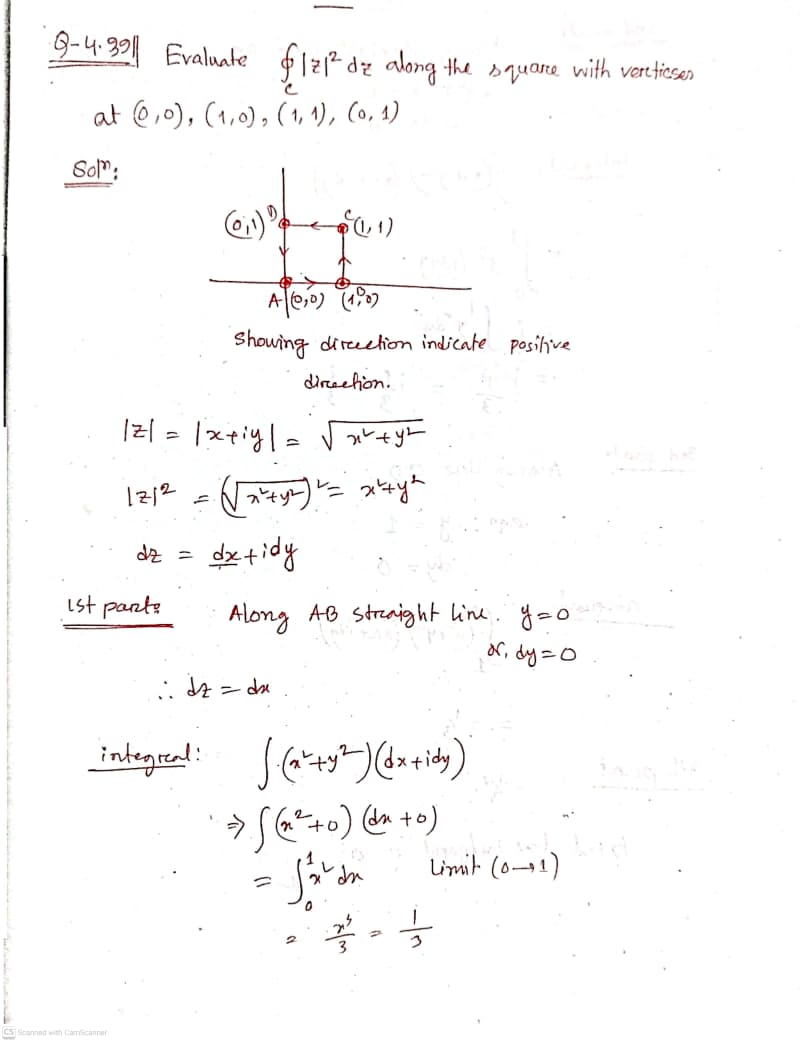 Q-4.39|| Evaluate ∮_C |z|² dz along the square with verticses
at (0,0), (1,0), (1,1), (0,1)
Solⁿ:
(0,1) D C (1,1)
A (0,0) B (1,0)
Showing direction indicate positive
direction.
|z| = |x+iy| = √x²+y²
|z|² = (√x²+y²)² = x²+y²
dz = dx+idy
1st part: Along AB straight line. y=0
or, dy=0
∴ dz = dx.
integral: ∫(x²+y²)(dx+idy)
⇒ ∫(x²+0)(dx+0)
= ∫₀¹ x² dx Limit (0→1)
= x³/3 = 1/3
CS Scanned with CamScanner